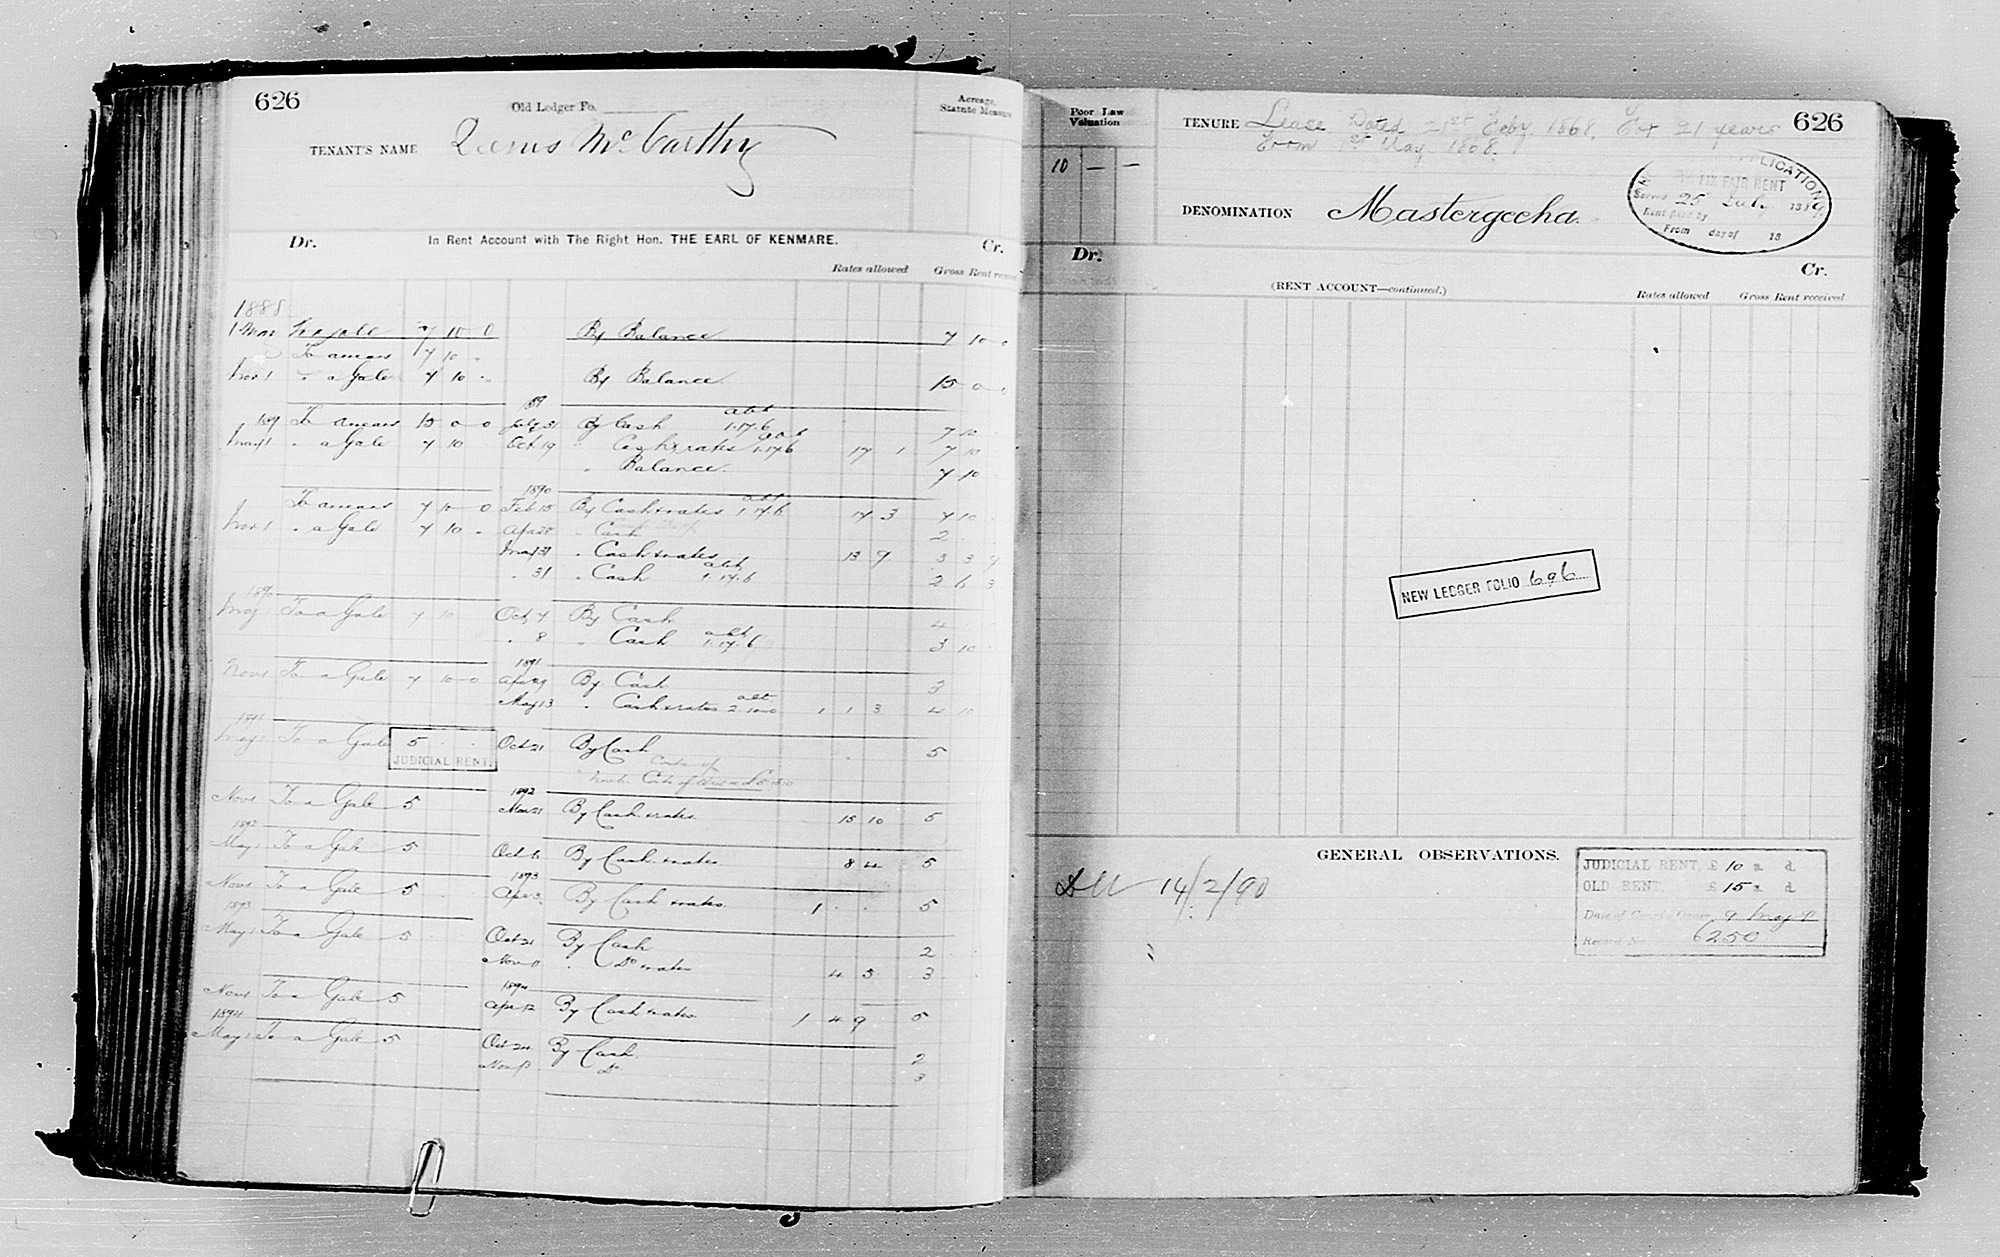 626
Old Ledger Fo.
Acreage, Statute Measure
TENANT'S NAME Denis McCarthy
Dr. In Rent Account with The Right Hon. THE EARL OF KENMARE. Cr.
Rates allowed Gross Rent
1888
1 May To a gale 7 10 0 By Balance 7 10
To arrears 7 10 -
Nov 1 " a Gale 7 10 - By Balance 15 0
89
189 To arrears 15 0 0 July 31 By Cash abt 1.17.6 7 10
May 1 " a Gale 7 10 Oct 19 " Cash & rates abt 1.17.6 17 1 7 10
" Balance 7 10
1890
To arrears 7 10 0 Feb 15 By Cash & rates abt 1.17.6 17 3 7 10
Nov 1 " a Gale 7 10 - Apr 28 " Cash 2
May 31 " Cash & rates 13 9 3 3 9
" 31 " Cash abt 1.17.6 2 6 3
1890
May 1 To a Gale 7 10 Oct 7 By Cash 4
" 8 " Cash abt 1.17.6 3 10
1891
Nov 1 To a Gale 7 10 0 Apr 29 By Cash 3
May 13 " Cash & rates abt 2.10.0 1 1 3 4 10
1891
May 1 To a Gale 5 Oct 21 By Cash 5
JUDICIAL RENT.
1892
Nov 1 To a Gale 5 Mar 21 By Cash & rates 15 10 5
1892
May 1 To a Gale 5 Oct 6 By Cash & rates 8 4 5
1893
Nov 1 To a Gale 5 Apr 3 By Cash & rates 1 . . 5
1893
May 1 To a Gale 5 Oct 21 By Cash 2
Nov 11 " Do & rates 4 5 3
1894
Nov 1 To a Gale 5 Apr 12 By Cash & rates 1 4 9 5
1894
May 1 To a Gale 5 Oct 24 By Cash 2
Nov 13 Do 3
Poor Law Valuation
10 — —
TENURE Lease Dated 21st Feby. 1868. For 21 years 626
From 1st May 1868.
APPLICATION
TO FIX FAIR RENT
Served 25 July 1889
Rent fixed by
From day of 18
DENOMINATION Mastergeeha.
Dr. Cr.
(RENT ACCOUNT—continued.)
Rates allowed Gross Rent received
NEW LEDGER FOLIO 696
GENERAL OBSERVATIONS.
14/2/90
JUDICIAL RENT, £ 10 s. d.
OLD RENT, £ 15 s. d.
Date of Court's Order, 9 May 91
Record No. 6250